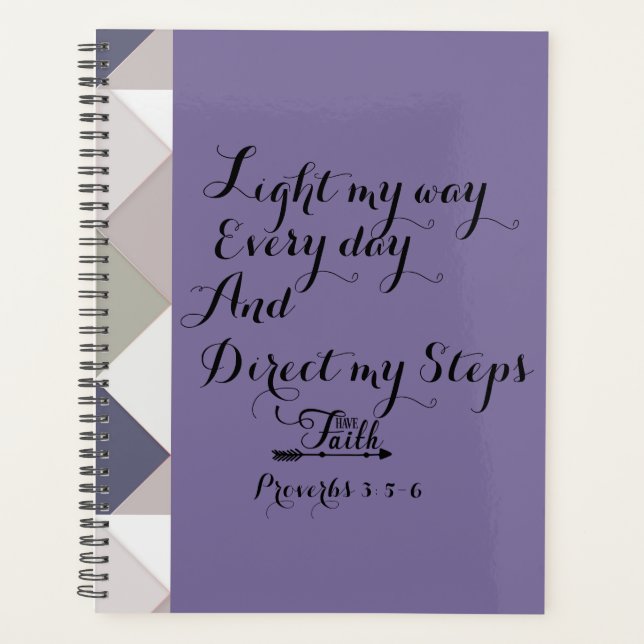 Light my way
Every day
And
Direct my Steps
HAVE
Faith
Proverbs 3:5-6